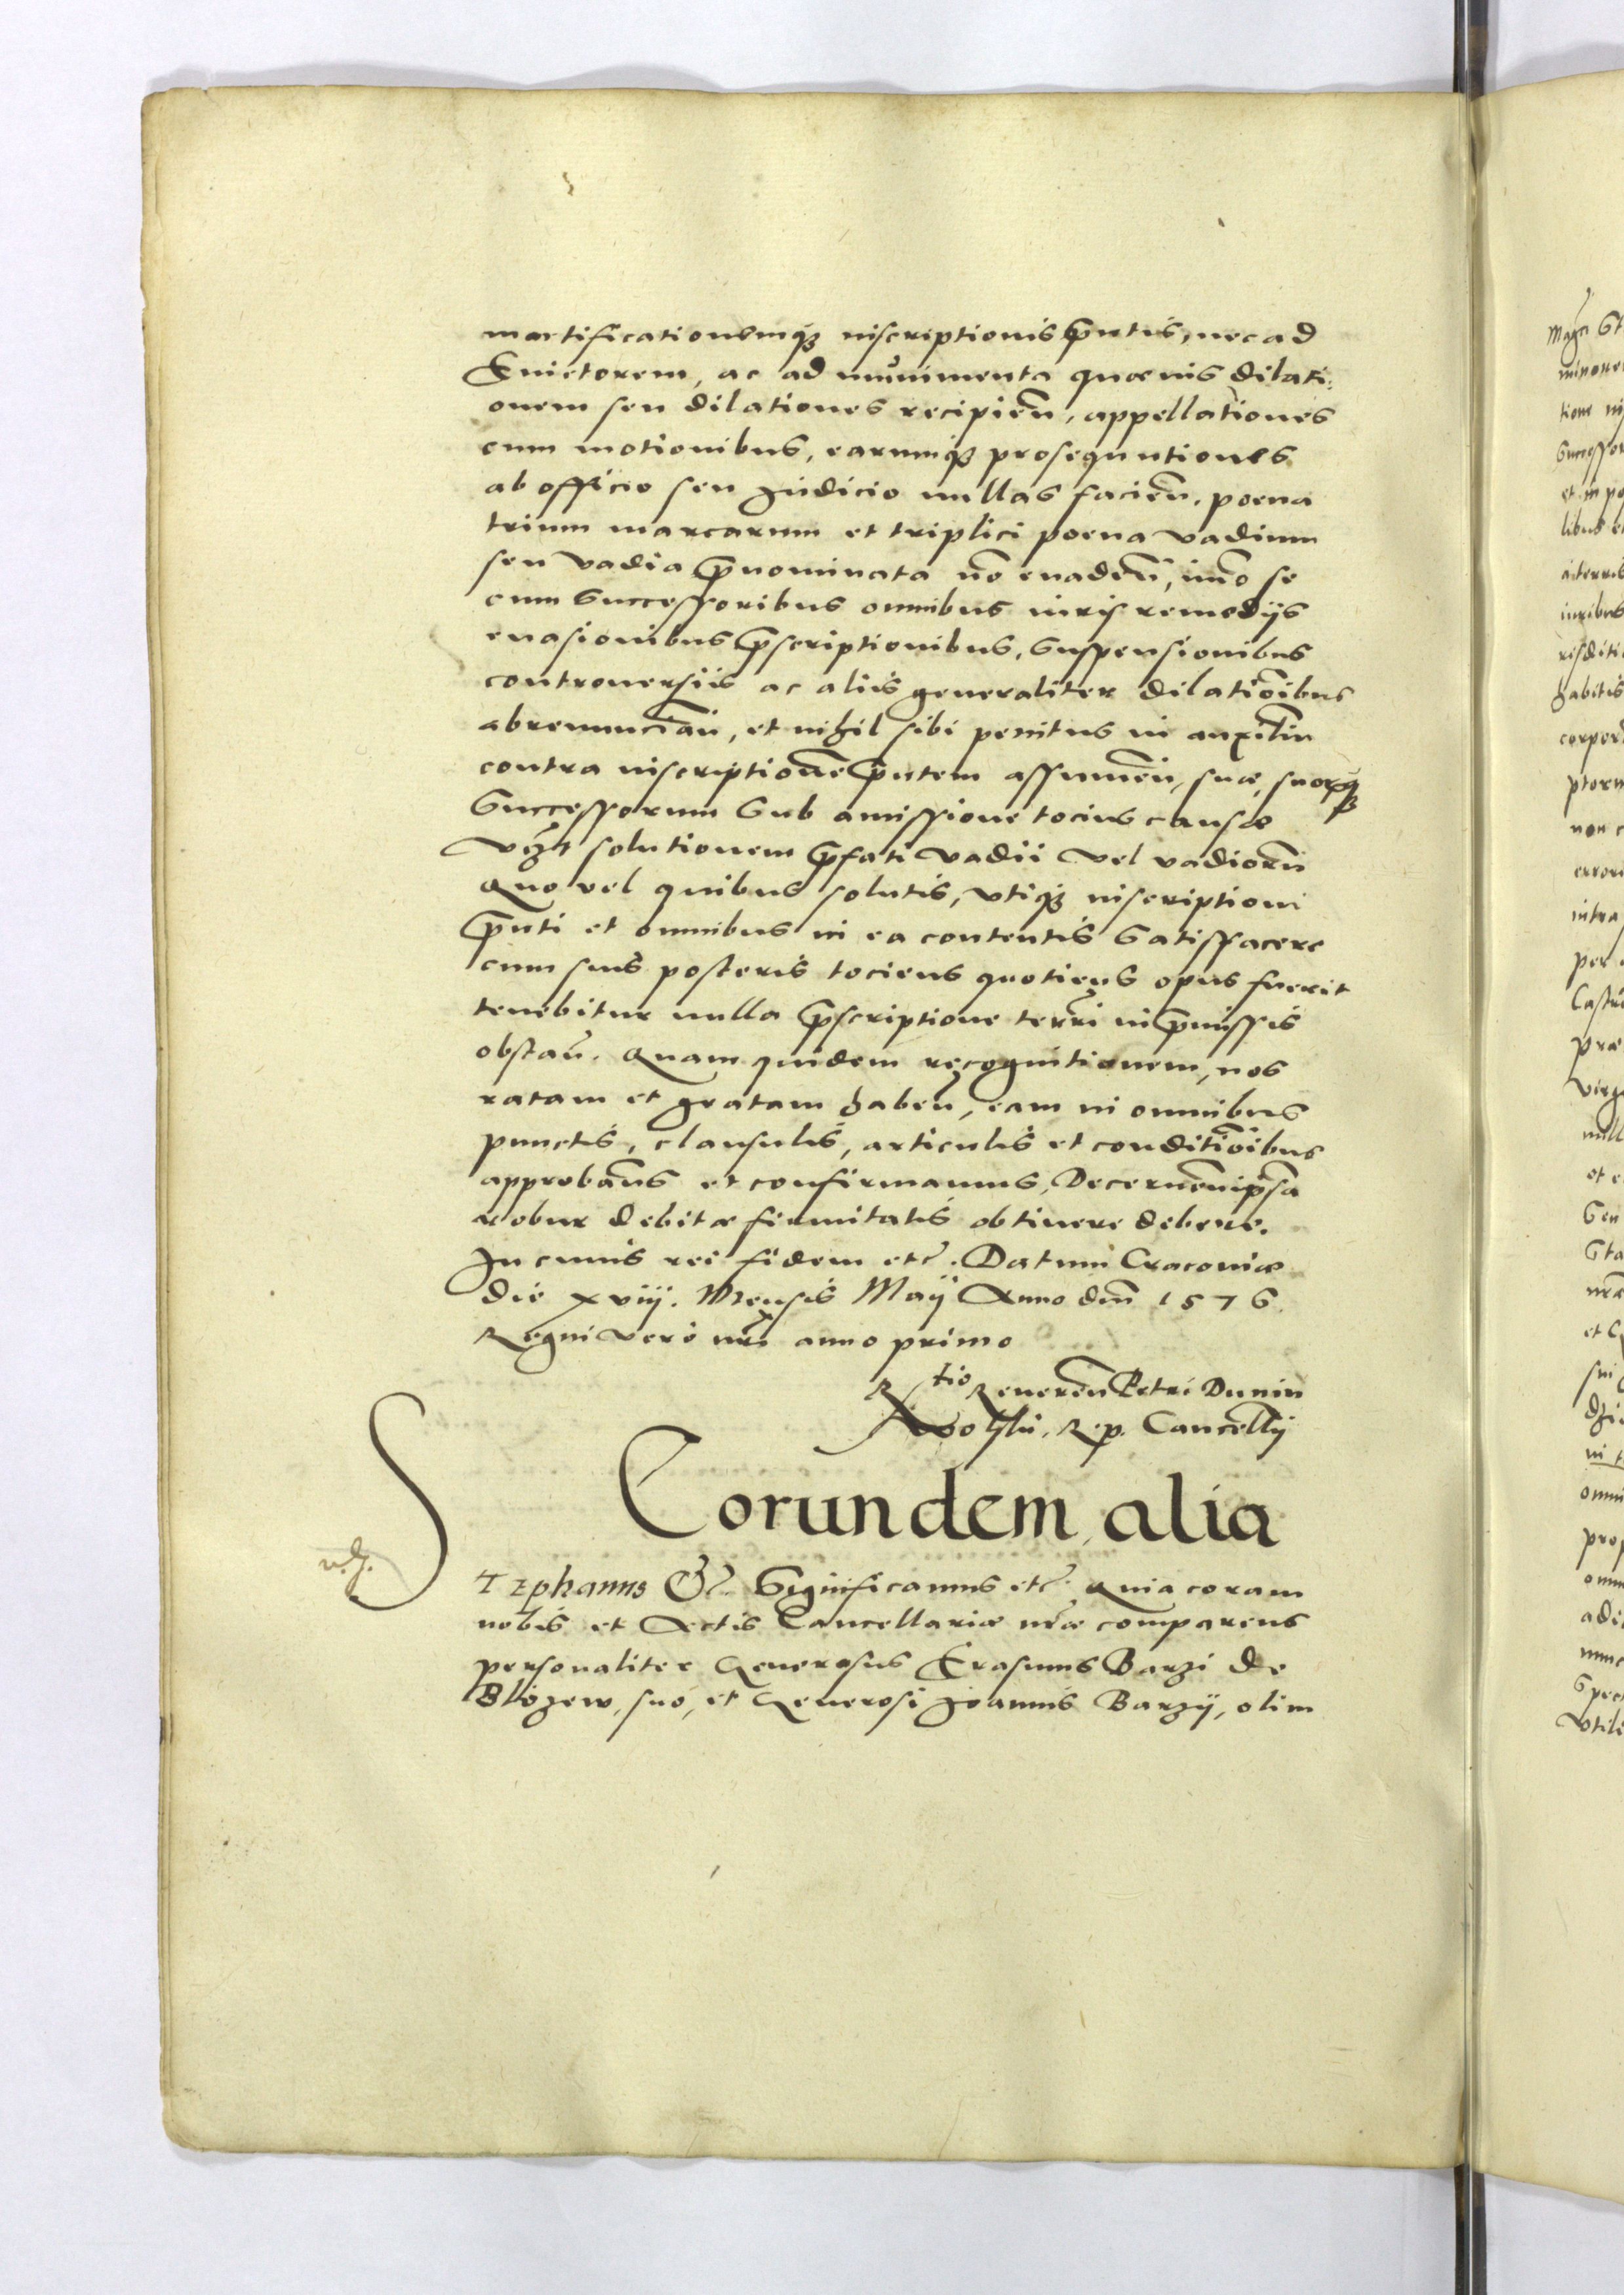 mortificationemq₃ inscriptionis p̄ntis, nec ad
Evictorem, ac ad munimenta quævis dilati:
onem seu dilationes recipien̄, appellationes
cum motionibus, earumq₃ prosequutiones
ab officio seu Judicio nullas facien̄. poena
trium marcarum et triplici poena vadium
seu vadia p̄nominata no̅ evaden̄, imo se
cum Successoribus omnibus iuris remedijs
evasionibus p̄scriptionibus, Suspensionibus
controversiis ac aliis generaliter dilatio̅ibus
abrenuncian̄, et nihil sibi penitus in auxiliu̅
contra inscriptione̅ p̄ntem assumen̄, suæ, suorq₃
Successorum Sub amissione tocius causæ
vȝt solutionem p̄fati vadii vel vadioru̅
Quo vel quibus solutis, utiq₃ inscriptioni
p̄nti et omnibus in ea contentis Satisfacere
cum suis posteris tociens quotiens opus fuerit
tenebitur nulla p̄scriptione terrȋ in p̄missis
obstan̄. Quam quidem recognitionem, nos
ratam et gratam haben̄, eam in omnibus
punctis, clausulis, articulis et conditio̅ibus
approbam̄s et confirmamus, Decernen̄ ip̄sa̅
robur debitæ firmitatis obtinere debere.
In cuius rei fidem etc̃. Datum Cracoviæ
die xviij. Mensis Maij Anno dn̄i 1576.
Regni vero nr̃i anno primo
R̃tio Reveren̄ Petri Dunin
Wolski. R. p. Cancellrij
Eorundem alia
v.g.
STephanus &c̃. Significamus etc̃. Quia coram
nobis et Actis Cancellariæ nr̃æ comparens
personaliter Generosus Erasmus Barzi de
Blozew, suo, et Generosi Joannis Barzij, olim